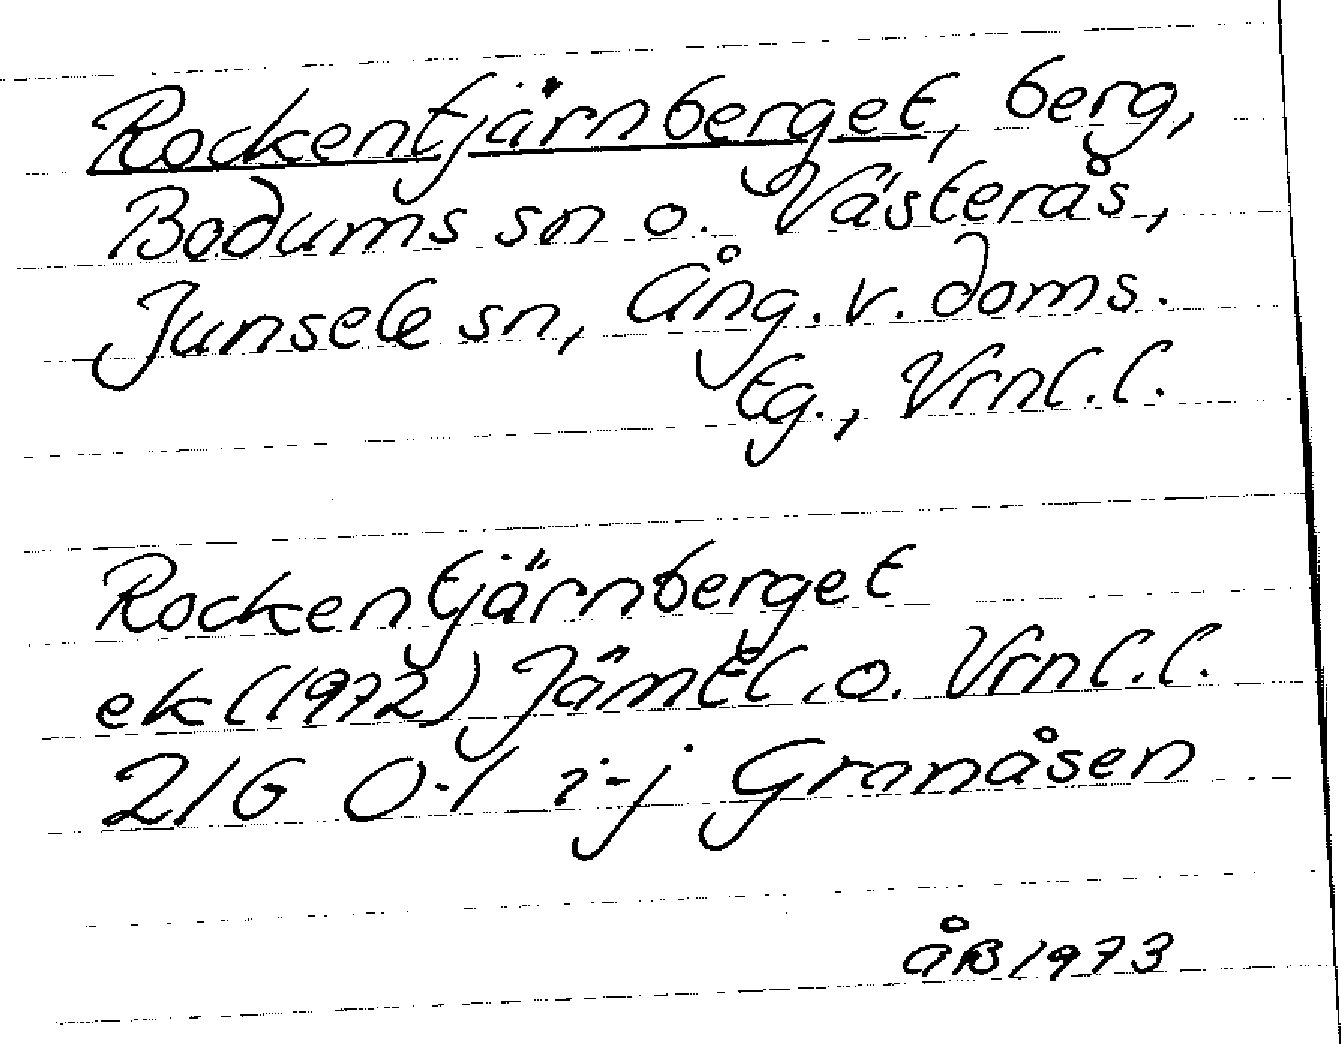 Rockentjärnberget, berg,
Bodums sn o. Västerås,
Junsele sn, Ång. v. doms.
tg., Vrnl. l.
Rockentjärnberget
ek (1972) Jämtl. o. Vrnl. l.
21G 0-1 i-j Granåsen
åB 1973